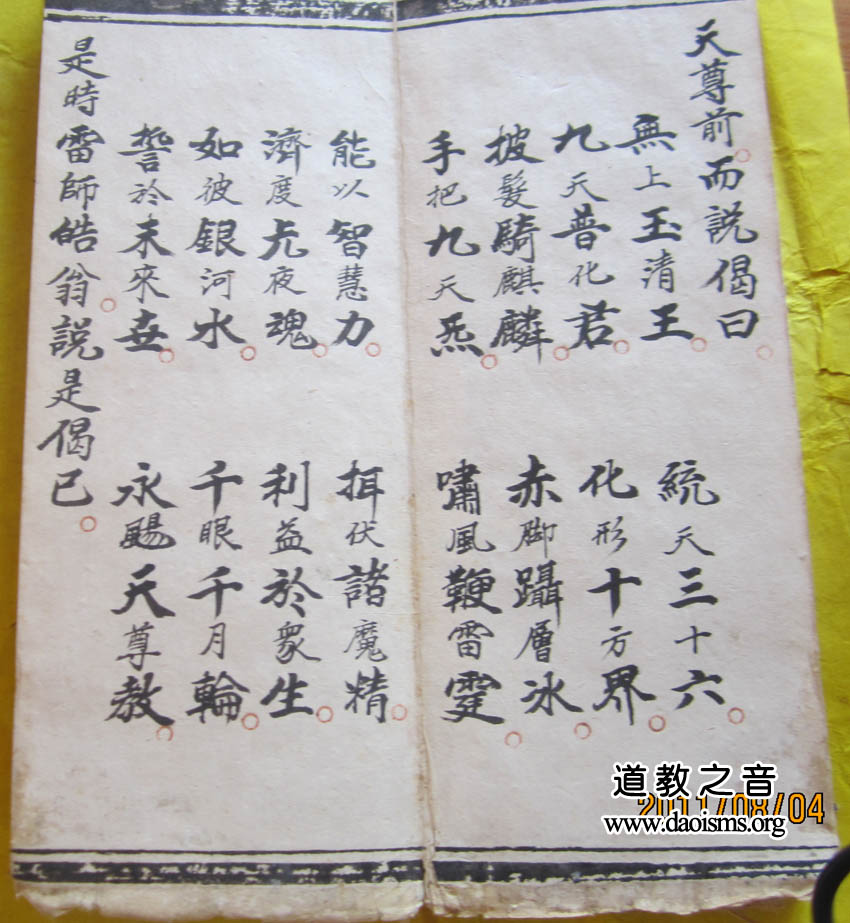 天尊前而說偈曰
無上玉清王 統天三十六
九天普化君 化形十方界
披髮騎麒麟 赤脚躡層冰
手把九天炁 嘯風鞭雷霆
能以智慧力 揖伏諸魔精
濟度夜魂 利益於眾生
如彼銀河水 千眼千月輪
誓於未來世 永颺天尊教
是時雷師皓翁說是偈已
道教之音
2011/08/04
www.daoisms.org